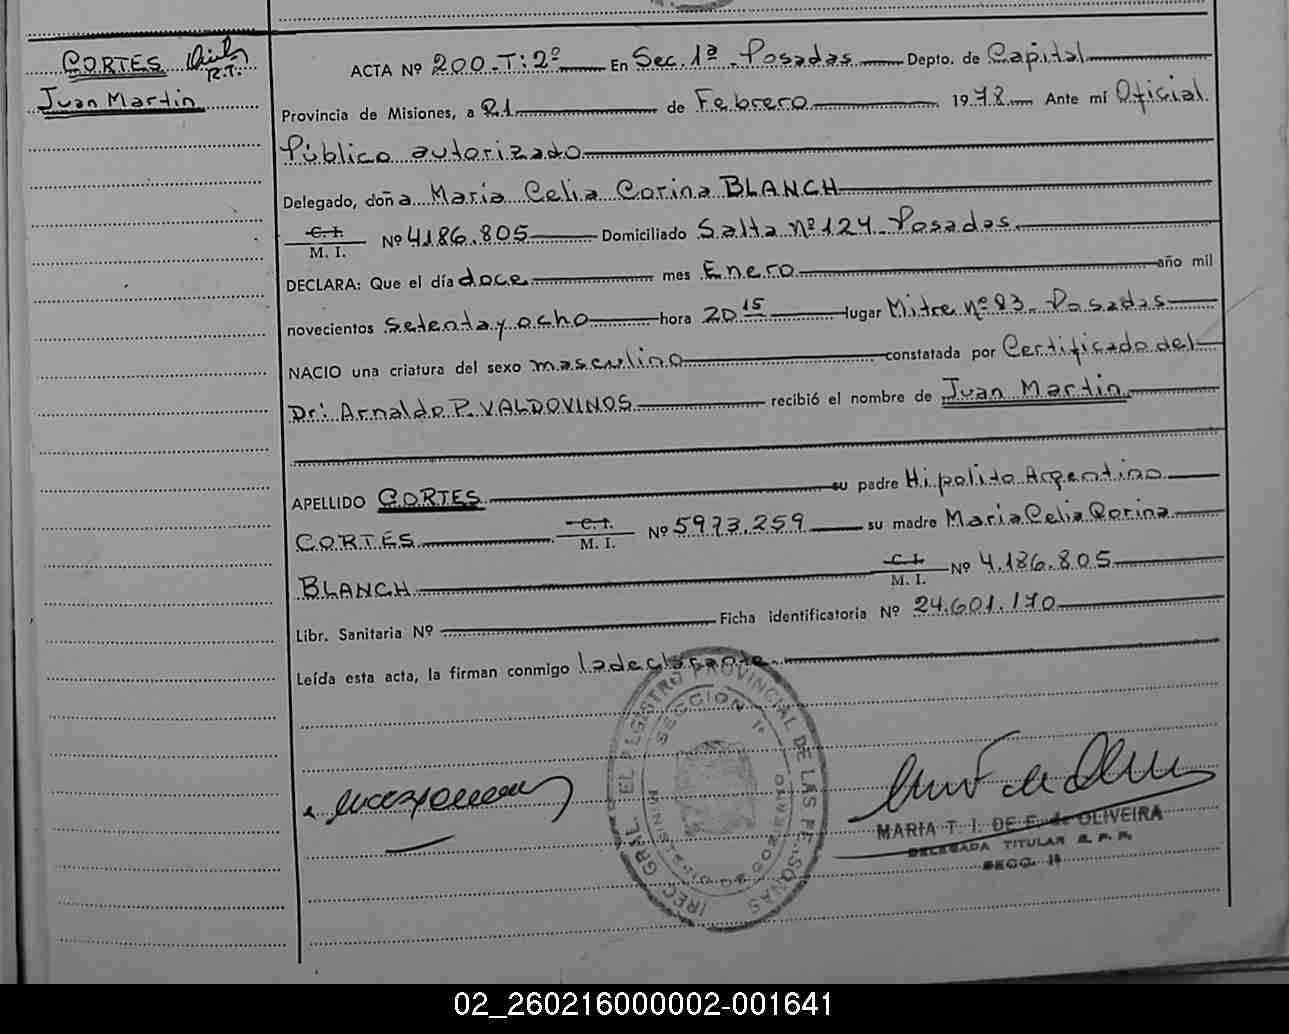 CORTES
R.T.
Juan Martin
ACTA Nº 200-T:2º En Sec. 1ª - Posadas Depto. de Capital
Provincia de Misiones, a 21 de Febrero 1978 Ante mí Oficial
Público autorizado
Delegado, doña María Celia Corina BLANCH
C. I.
M. I. Nº 4186.805 Domiciliado Salta nº 124 - Posadas
DECLARA: Que el día doce mes Enero año mil
novecientos setenta y ocho hora 20 15 lugar Mitre nº 83 - Posadas
NACIO una criatura del sexo masculino constatada por Certificado del
Dr: Arnaldo P. VALDOVINOS recibió el nombre de Juan Martin
APELLIDO CORTES su padre Hipolito Argentino
CORTES C. I. M. I. Nº 5973.259 su madre Maria Celia Corina
BLANCH C. I. M. I. Nº 4.186.805
Libr. Sanitaria Nº Ficha identificatoria Nº 24.601.170
Leída esta acta, la firman conmigo la declarante
REGISTRO PROVINCIAL DE LAS PERSONAS
SECCION 1ª
MARIA T. I. DE F. de OLIVEIRA
DELEGADA TITULAR R. P. P.
SECC. 1ª
02_260216000002-001641